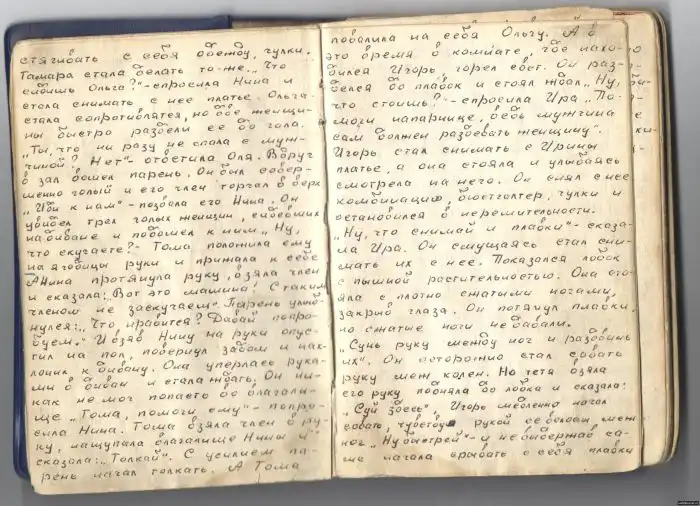 стягивать с себя одежду, чулки.
Тамара стала делать то-же. „Что
сидишь Ольга?"-спросила Нина и
стала снимать с нее платье. Ольга
стала сопротивлятся, но две женщи-
ны быстро раздели ее до гола.
„Ты, что ни разу не спала с муж-
чиной? Нет"-ответила Оля. Вдруг
в зал вошел парень. Он был совер-
шенно голый и его член торчал в верх
„Иди к нам"-позвала его Нина. Он
увидел трех голых женщин, сидевших
на диване и подошел к ним „Ну,
что скучаете?-Тома положила ему
на ягодицы руки и прижала к себе
А Нина протянула руку, взяла член
и сказала: „Вот это машина! С таким
членом не заскучаем" Парень улыб-
нулся: „Что нравится? Давай попро-
буем." И взяв Нину на руки опус-
тил на пол, повернул задом и нак-
лонил к дивану. Она уперлась рука-
ми в диван и стала ждать. Он ни-
как не мог попасть во влагали-
ще „Тома, помоги ему"-попро-
сила Нина. Тома взяла член в ру-
ку, нащупала влагалище Нины и
сказала: „Толкай". С усилием па-
рень начал толкать. А Тома
повалила на себя Ольгу. А в
это время в комнате, где нахо-
дился Игорь горел свет. Он раз-
делся до плавок и стоял ждал „Ну,
что стоишь?-спросила Ира „По-
моги напарнице, ведь мужчина
сам должен раздевать женщину".
Игорь стал снимать с Ирины
платье, а она стояла и улыбаясь
смотрела на него. Он снял с нее
комбинацию, бюстгалтер, чулки и
остановился в нерешительности.
„Ну, что снимай и плавки"-сказа-
ла Ира. Он смущаясь стал сни-
мать их с нее. Показался лобок
с пышной растительностью. Она сто-
яла с плотно сжатыми ногами,
закрыв глаза. Он потянул плавки,
но сжатые ноги не давали.
„Сунь руку между ног и раздвинь
их". Он осторожно стал совать
руку меж колен. Но тетя взяла
его руку подняла до лобка и сказала:
„Суй здесь". Игорь медленно начал
совать, чувствуя рукой
ног „Ну быстрей"-и не выдержав са-
ма начала срывать с себя плавки